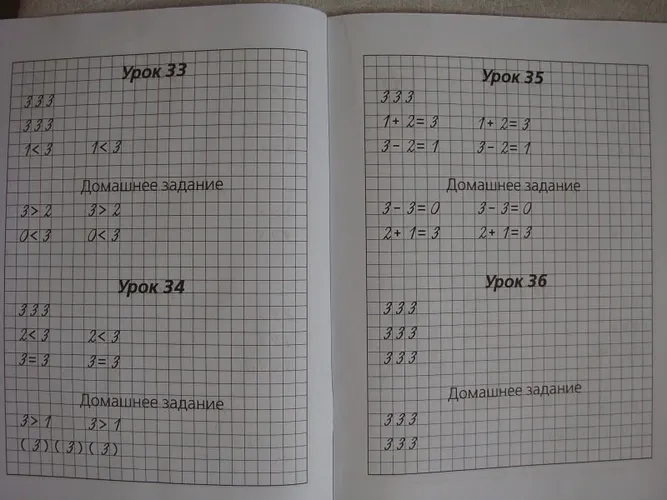 Урок 33
3 3 3
3 3 3
1 < 3 1 < 3
Домашнее задание
3 > 2 3 > 2
0 < 3 0 < 3
Урок 34
3 3 3
2 < 3 2 < 3
3 = 3 3 = 3
Домашнее задание
3 > 1 3 > 1
( 3 ) ( 3 ) ( 3 )
Урок 35
3 3 3
1 + 2 = 3 1 + 2 = 3
3 - 2 = 1 3 - 2 = 1
Домашнее задание
3 - 3 = 0 3 - 3 = 0
2 + 1 = 3 2 + 1 = 3
Урок 36
3 3 3
3 3 3
3 3 3
Домашнее задание
3 3 3
3 3 3